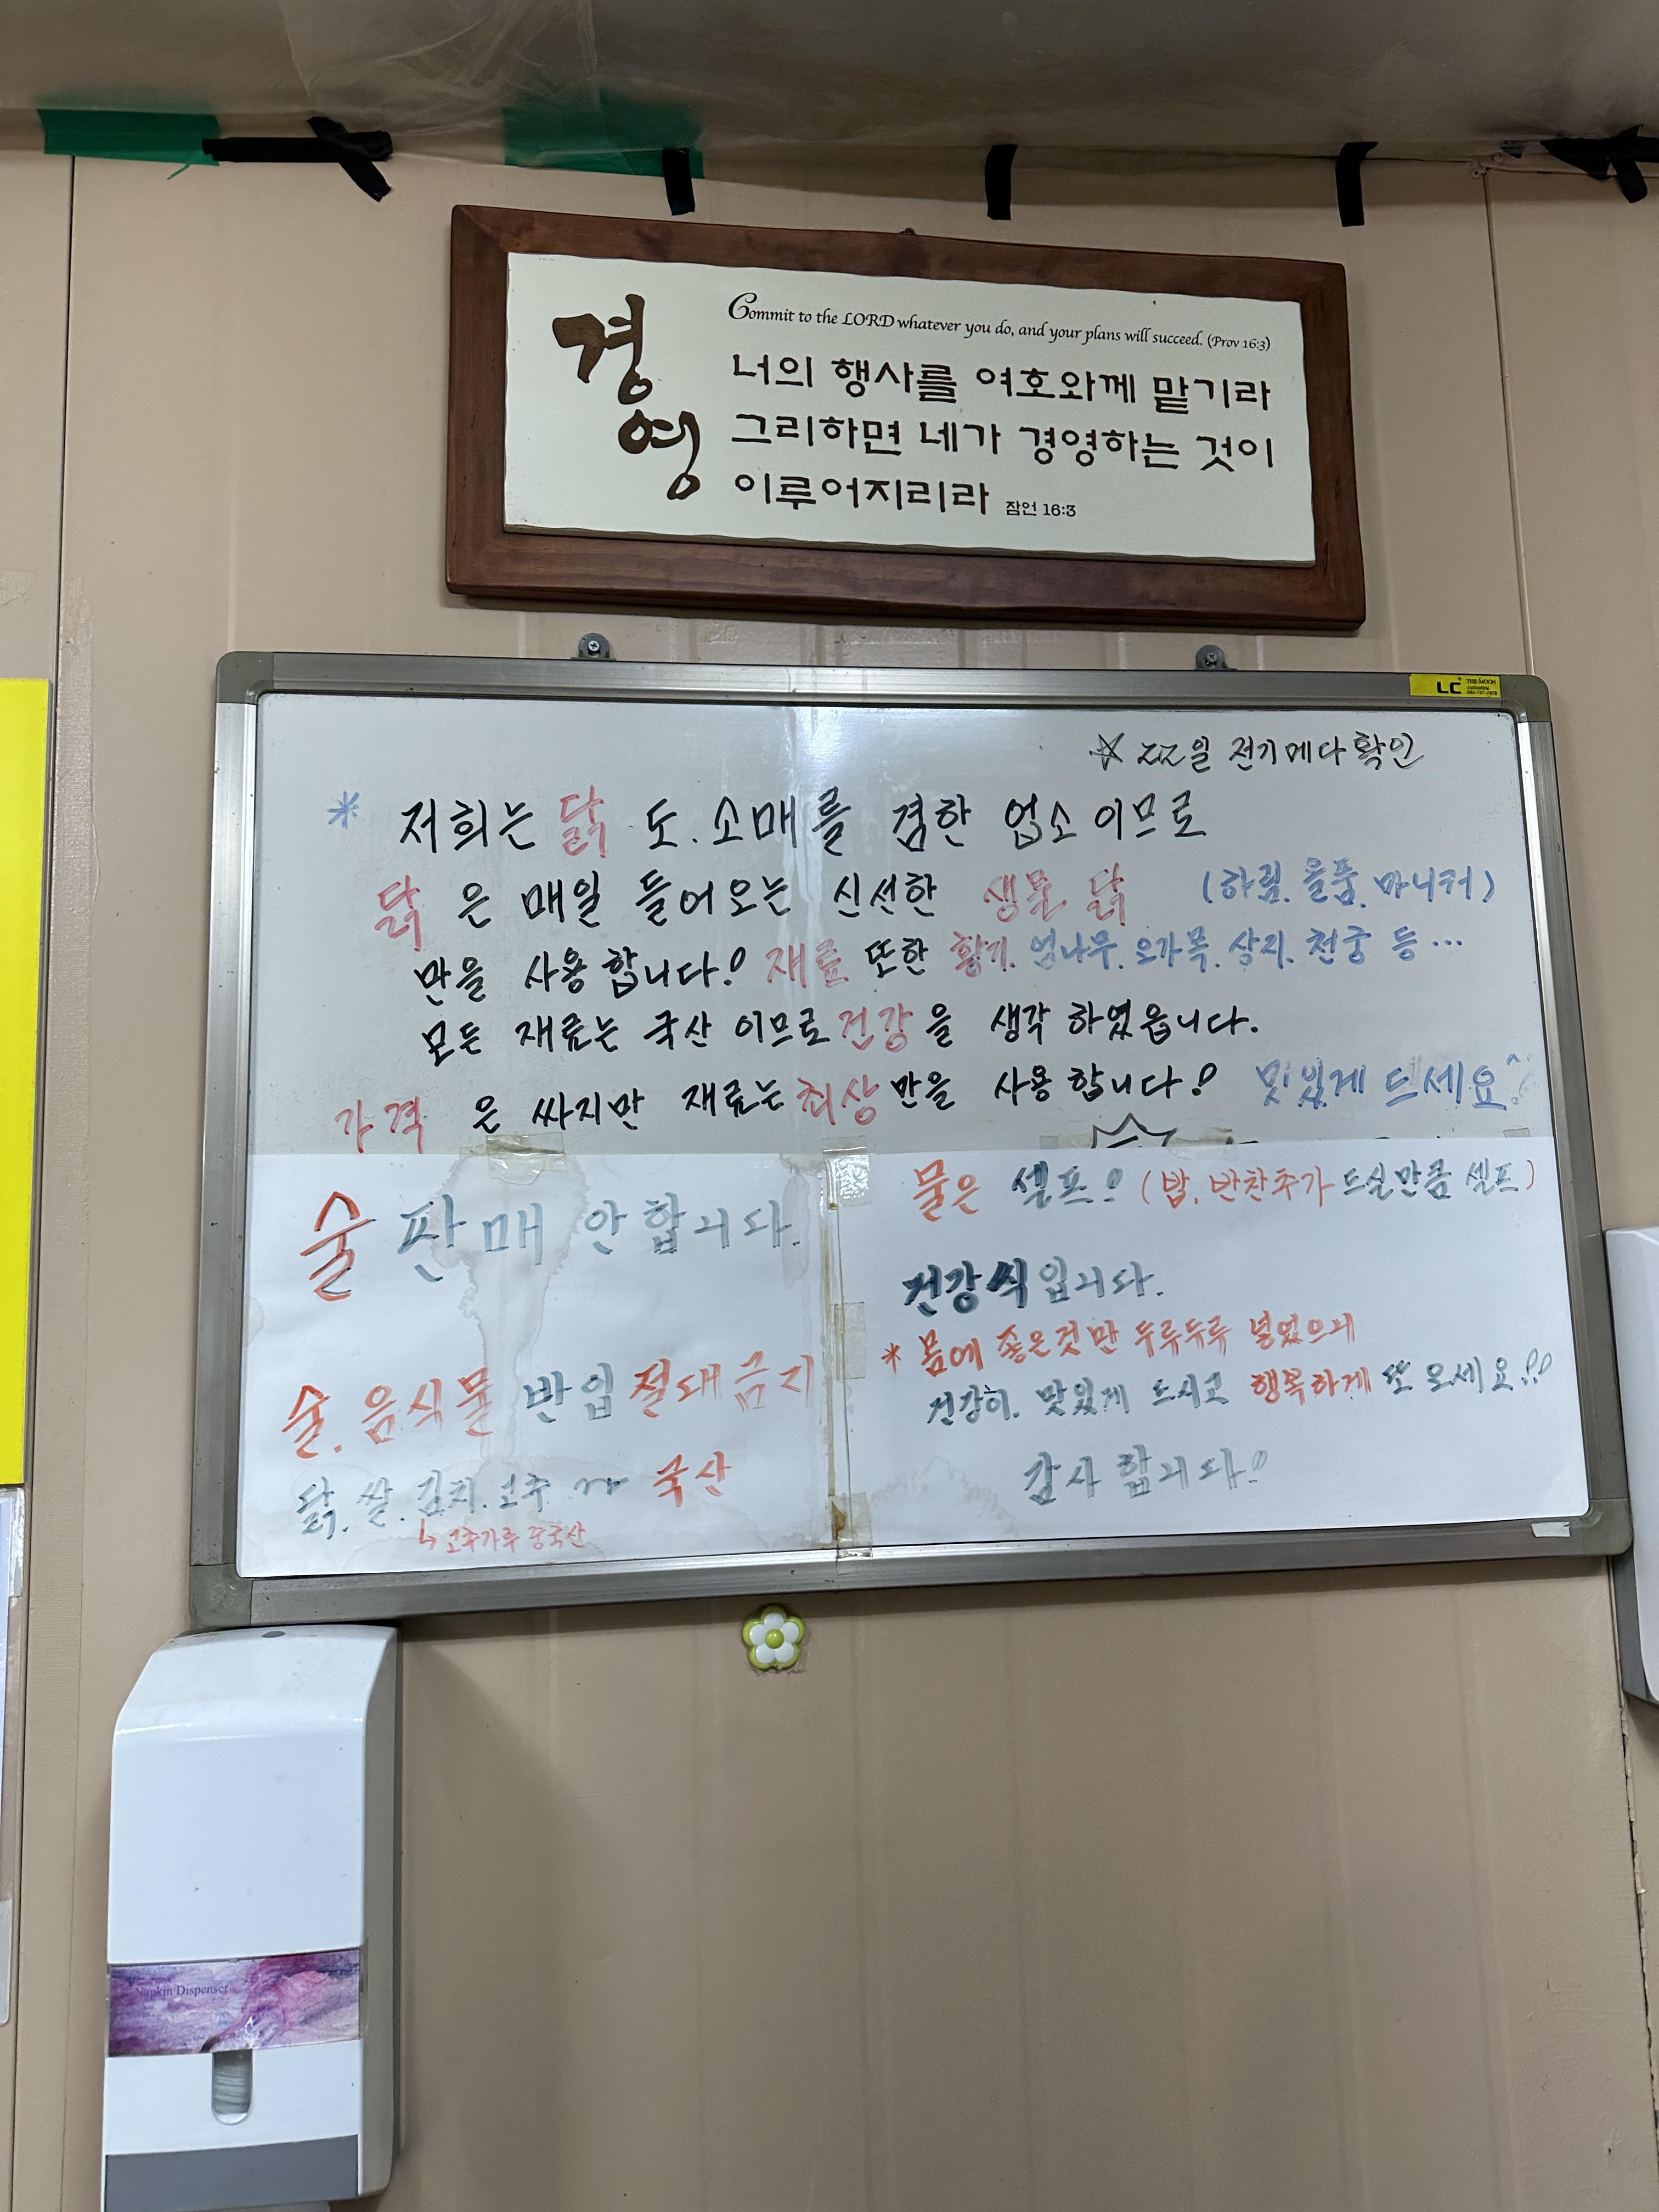 경영
Commit to the LORD whatever you do, and your plans will succeed. (Prov 16:3)
너의 행사를 여호와께 맡기라
그리하면 네가 경영하는 것이
이루어지리라 잠언 16:3
LC THE MOON
☆ 22일 전기메다확인
* 저희는 닭 도.소매를 겸한 업소이므로
닭은 매일 들어오는 신선한 생물 닭 (하림.올품.마니커)
만을 사용합니다! 재료 또한 황기.엄나무.오가목.상지.천궁 등...
모든 재료는 국산 이므로 건강을 생각 하였읍니다.
가격은 싸지만 재료는 최상만을 사용합니다! 맛있게 드세요^^
술 판매 안합니다.
술.음식물 반입 절대금지
닭.쌀.김치.고추 ~ 국산
↳ 고추가루 중국산
물은 셀프! (밥.반찬추가 드실만큼 셀프)
건강식입니다.
* 몸에 좋은것만 두루두루 넣었으니
건강히. 맛있게 드시고 행복하게 또 오세요!!
감사합니다!
Napkin Dispenser